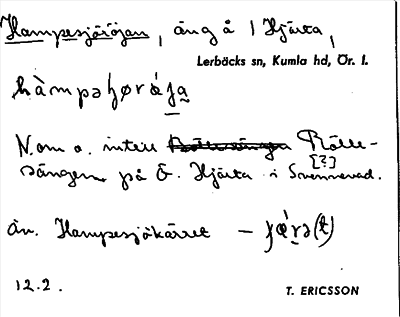 Hampesjöröjan, äng å 1 Hjärta,
Lerbäcks sn, Kumla hd, Ör. l.
hàmpəʃørǿja
N. om o. intill Rötte-
[?]
sängen på Ö. Hjärta i Svennevad.
än. Hampesjökärret – çæ̀rə(t)
12.2.
T. ERICSSON